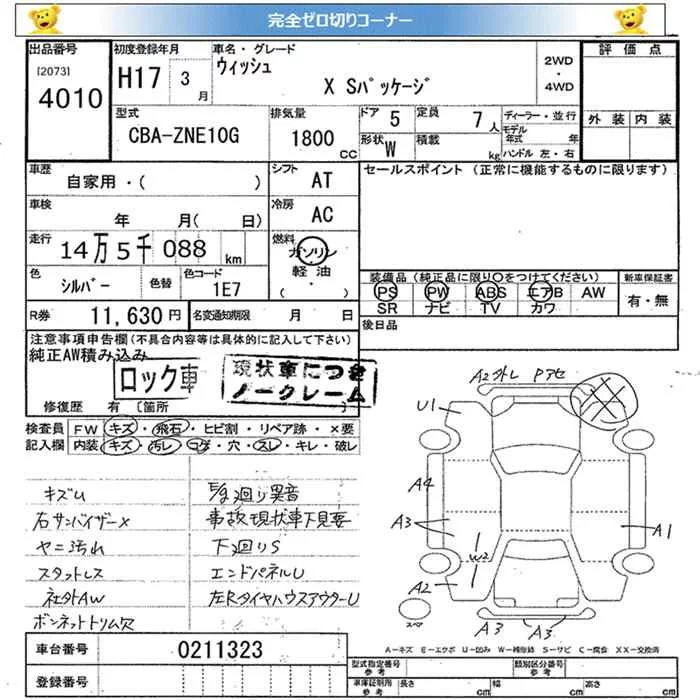 完全ゼロ切りコーナー
出品番号
[2073]
4010
初度登録年月
H17 3月
車名・グレード
ウィッシュ
X Sパッケージ
2WD
・
4WD
評価点
外装 内装
型式
CBA-ZNE10G
排気量
1800 CC
ドア 5
定員 7人
形状 W
積載 kg
ディーラー・並行
モデル年式 年
ハンドル 左・右
車歴
自家用・( )
シフト
AT
セールスポイント (正常に機能するものに限ります)
車検
年 月( 日)
冷房
AC
走行
14万5千088 km
燃料
ガソリン
軽油
・( )
色
シルバー
色替
色コード
1E7
装備品(純正品に限り○をつけてください)
PS PW ABS エアB AW
SR ナビ TV カワ
新車保証書
有・無
R券 11,630円
名変通知期限 月 日
後日品
注意事項申告欄(不具合内容等は具体的に記入して下さい)
純正AW積み込み
ロック車
現状車につき
ノークレーム
修復歴 有 [箇所 ]
検査員
記入欄
FW キズ・飛石・ヒビ割・リペア跡・×要
内装 キズ・汚レ・コゲ・穴・スレ・キレ・破レ
キズU
右サンバイザー×
ヤニ汚れ
スタットレス
社外AW
ボンネットトリム欠
E/g廻り異音
事故現状車下見要
下廻りS
エンドパネルU
左Rタイヤハウスアウター U
A2外レ Pアセ
U1
A4
A3
A2
W2
A1
A3
A3
スペア
A-キズ E-エクボ U-凹み W-補修跡 S-サビ C-腐食 XX-交換済
車台番号
0211323
登録番号
型式指定番号
参考
類別区分番号
参考
車庫証明用
参考
長さ cm
幅 cm
高さ cm